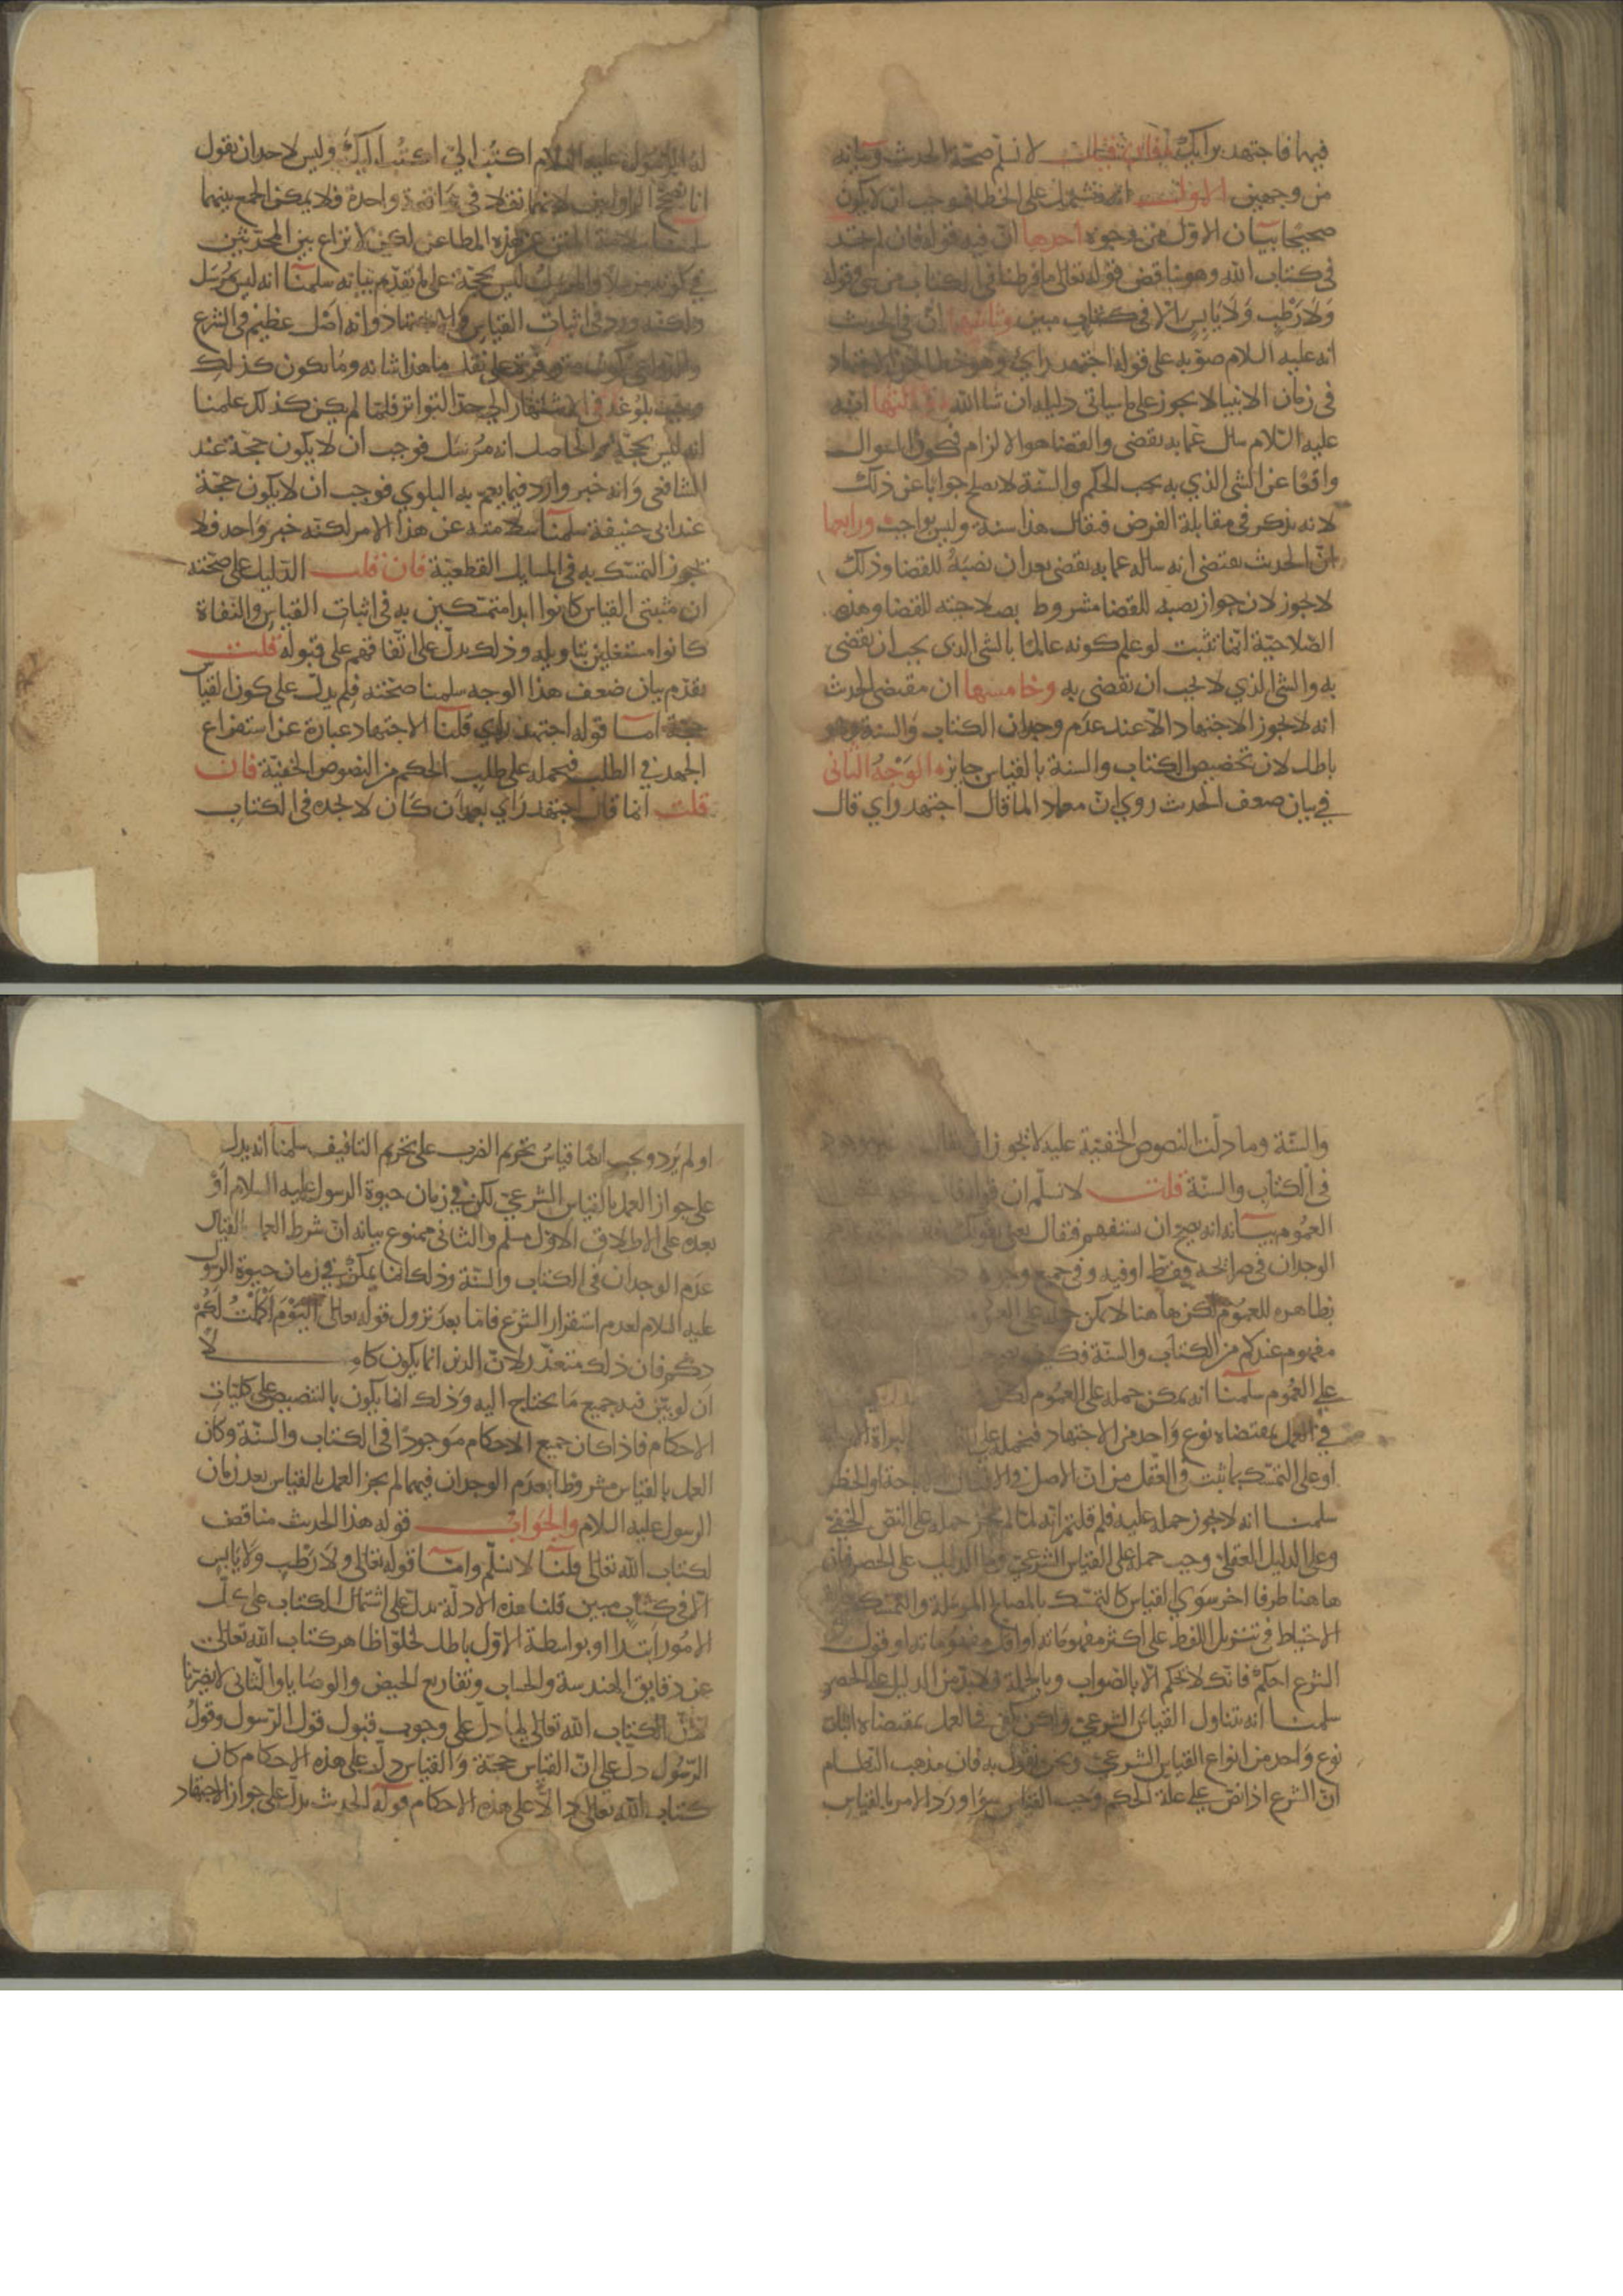 فيها فاجتهد برايك فان قيل لا نسلم صحة الحديث وبيانه
من وجهين الاول انه مشتمل على الخطا فوجب ان لا يكون
صحيحا بيان الاول من وجوه احدها ان فيه قوله فان لم تجد
فى كتاب الله وهو يناقض قوله تعالى ما فرطنا فى الكتاب من شى وقوله
وَلا رَطْبٍ وَلا يَابِسٍ الا فى كتاب مبين وثانيها ان فى الحديث
انه عليه السلام صوبه على قوله اجتهد رايى وهو خطا لان الاجتهاد
فى زمان الانبيا لا يجوز على ما سياتى دليله ان شا الله وثالثها انه
عليه السلام سال عما به يقضى والقضا هو الالزام فيكون السوال
واقعًا عن الشى الذي به يجب الحكم والسنّة لا يصلح جوابا عن ذلك
لانه يذكر فى مقابلة الفرض فيقال هذا سنة وليس بواجب ورابعها
انّ الحديث يقتضى انه ساله عما به يقضى بعد ان نصبَهُ للقضا وذلك
لا يجوز لان جواز نصبه للقضا مشروط بصلاحيته للقضا وهذه
الصّلاحيّة انّما تثبت لو علم كونه عالمًا بالشى الذي يجب ان يقضى
به والشى الذي لا يجب ان يقضى به وخامسها ان مقتضى الحديث
انه لا يجوز الاجتهاد الّا عند عدم وجدان الكتاب والسنة وهو
باطل لان تخصيص الكتاب والسنة بالقياس جايز الوَجْهُ الثانى
في بيان ضعف الحديث روي انّ معاذا لما قال اجتهد راي قال
له الرسول عليه السلام اكتُب اليّ اكتُب اليكَ وليس لاحد ان يقول
انا نصحح الروايتين لانهما نقلا فى واقعة واحدة فلا يمكن الجمع بينهما
سلمنا سلامة المتن عن هذه المطاعن لكن لا نزاع بين المحدّثين
في كونه مرسلا والمرسل ليس بحجّة على ما تقدّم بيانه سلمنا انه ليس مُرسَل
ولكنه ورد فى اثبات القياس والاجتهاد وانه اصْل عظيم فى الشرع
والدواعي تكون متوفرة على نقل ما هذا شانه وما يكون كذلك
وجب بلوغه فى الاشتهار الي حدّ التواتر فلمّا لم يكن كذلك علمنا
انه ليس بحجّة والحاصل انه مُرسَل فوجب ان لا يكون حجّة عند
الشافعى وَانه خبر وارد فيما يعم به البلوي فوجب ان لا يكون حجّة
عند ابى حنيفة سلمنا سلامته عن هذا الامر لكنّه خبر واحد فلا
يجوز التمسّك به فى المسايل القطعيّة فان قلت الدّليل على صحّته
ان مثبتى القياس كانوا ابدا متمسّكين به فى اثبات القياس والنفاة
كانوا مشتغلين بتاويله وذلك يدلّ على اتّفاقهم على قبوله قلت
تقدّم بيان ضعف هذا الوجه سلمنا صحّته فلم يدلّ على كون القياس
حجة امّا قوله اجتهد راي قلنا الاجتهاد عبارة عن استفراغ
الجهد في الطلب فيحمله على طلب الحكم من النصوص الخفيّة فان
قلت انما قال اجتهد راي بعد ان كان لا يجده فى الكتاب
والسّنة وما دلّت النصوص الخفيّة عليه لا يجوز ان يقال
فى الكتاب والسنّة قلت لا نسلّم ان قوله
العمُوم بيانه انه يصح ان يستفهم فيقال
الوجدان فى صرايحه فقط او فيه و فى جميع وجوه
بظاهره للعمُوم لكن هاهنا لا يمكن حمله على العموم
مفهوم عندكم من الكتاب والسنّة فكيف
على العمُوم سلمنا انه يمكن حمله على العمُوم لكن
في العمل بمقتضاه نوع وَاحد من الاجتهاد فيحمله على البراة الاصلية
او على التمسّك بما ثبت فى العقل من انّ الاصل فى الاشيا الاباحة او الحظر
سلمنا انه لا يجوز حمله عليه فلم قلتم انّه لمّا لم يجز حمله على النصّ الخفيّ
وعلى الدليل العقلى وجب حمله على القياس الشرعيّ وما الدليل على الحصر فان
هاهنا طرفا اخر سوَي القياس كالتمسّك بالمصالح المرسلة والتمسّك
الاحتياط فى تنزيل اللفظ على اكثر مفهوماته او اقل مفهوماته او قول
الشرع احكم فانّك لا تحكم الّا بالصّواب وبالجملة فلا بدّ من الدليل على الحصر
سلمنا انه يتناول القياس الشرعيّ ولكن يكفى فى العمل بمقتضاه اثبات
نوع وَاحد من انواع القياس الشرعيّ ونحن نقول به فان مذهب النظّام
انّ الشرع اذا نصّ على علة الحكم وَجب القياس سوَا ورَد الامر بالقياس
او لم يَرد ويجب ايضًا قياسُ تحريم الضرب على تحريم التافيف سلمنا انه يدل
على جواز العمل بالقياس الشرعيّ لكن في زمان حيوة الرسول عليه السلام اَوْ
بعده على الاطلاق الاوّل مسلّم والثانى ممنوع بيانه انّ شرط العمل بالقياس
عدَم الوجدان فى الكتاب والسّنة وذلك انما يمكن في زمان حيوة الرسول
عليه السلام لعدم استقرار الشرْع فاما بعدَ نزول قوله تعالى اليَوْمَ اَكْمَلْتُ لَكُمْ
دينكم فان ذلك متعذّر لانّ الدين انما يكون كاملا
ان لو بيّن فيه جميع مَا يحتاج اليه وَذلك انما يكون بالتنصيص على كليّات
الاحكام فاذا كان جميع الاحكام مَوجودًا فى الكتاب والسنّة وكان
العمل بالقياس مشروطا بعدَم الوجدان فيهما لم يجز العمل بالقياس بعد زمان
الرسول عليه السلام والجَوابُ قوله هذا الحديث مناقض
لكتاب الله تعالى قلنا لا نسلّم وامّا قوله تعالى ولا رَطْبٍ وَلا يَابِسٍ
الّا فى كتاب مبين قلنا هذه الادلّة تدلّ على اشتمال الكتاب على كلّ
الامُور ابتدًا او بواسطة الاوّل باطل لخلوّ ظاهر كتاب الله تعالى
عن دقايق الهندسة والحساب وتفاريع الحيض والوصايا والثّانى لا يضرّنا
لانّ الكتاب الله تعالى لما دلّ على وجوب قبول قول الرّسول وقولُ
الرّسُول دلّ على انّ القياس حجّة وَالقياس دلّ على هذه الاحكام كان
كتاب الله تعالى دالّا على هذه الاحكام قوله الحديث يدلّ على جواز الاجتهاد